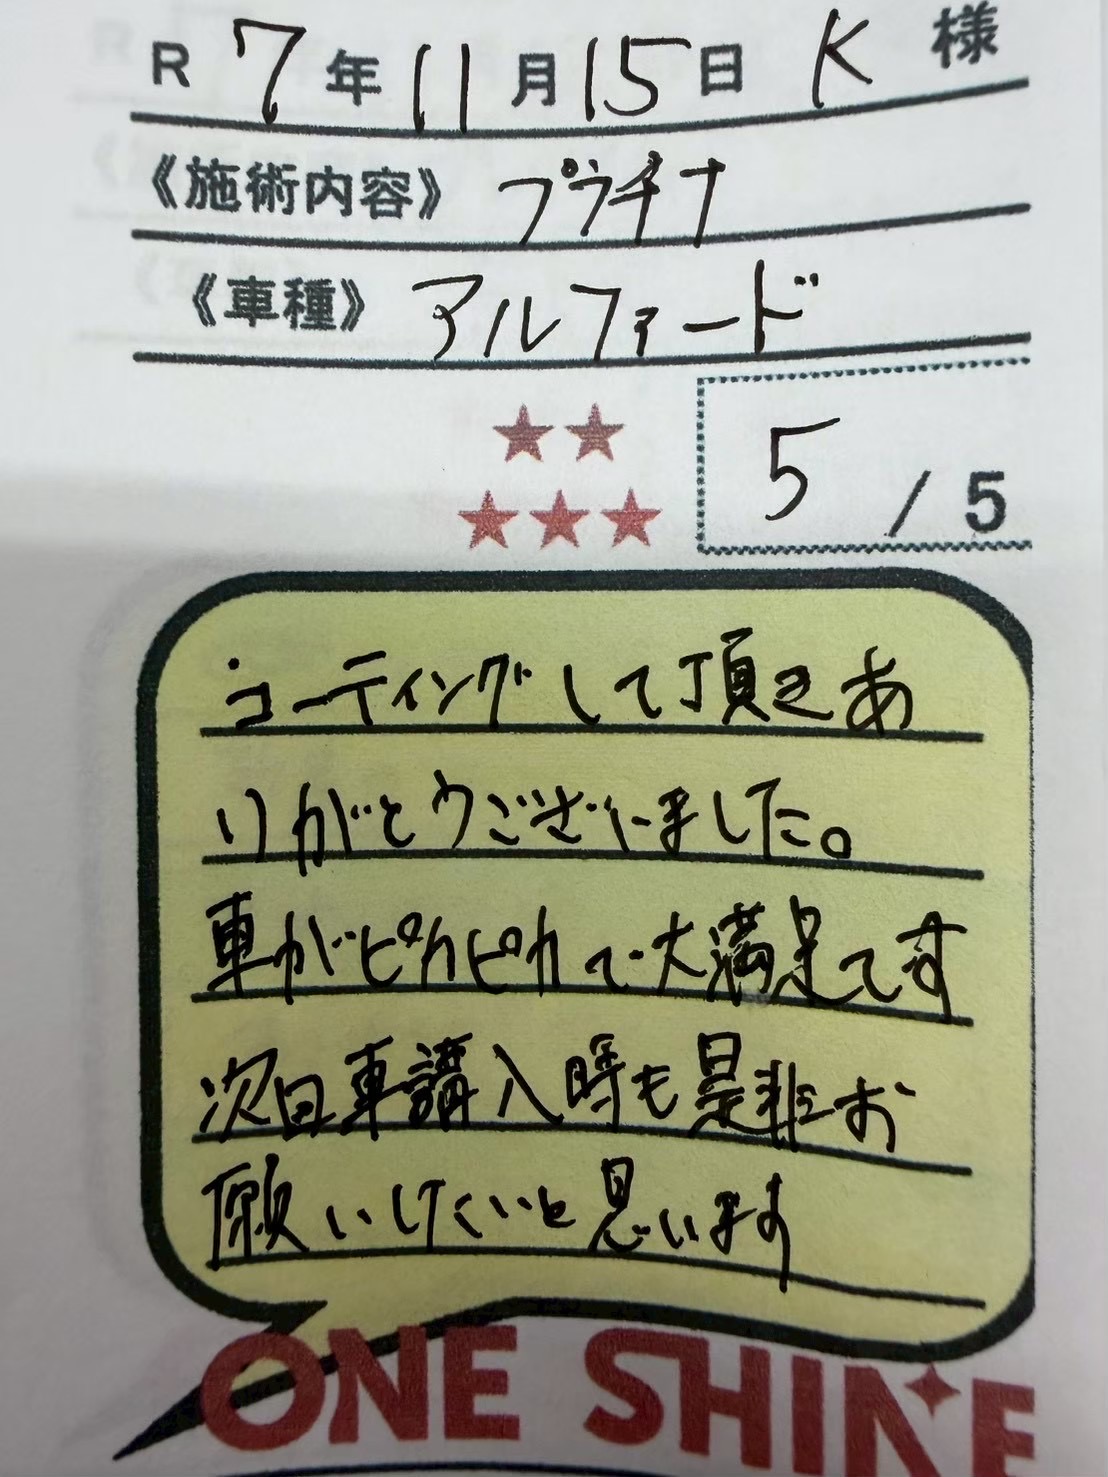 R 7年 11月 15日 K 様
《施術内容》 プラチナ
《車種》 アルファード
5 / 5
コーティングして頂きあ
りがとうございました。
車がピカピカで大満足です
次回車購入時も是非お
願いしたいと思います
ONE SHINE